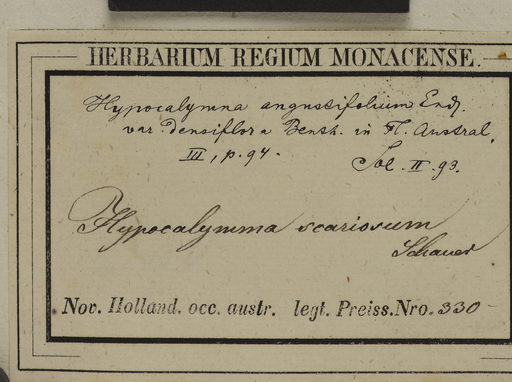 HERBARIUM REGIUM MONACENSE.
Hypocalymna angustifolium Endl.
var. densiflora Benth. in Fl. Austral.
III, p. 94.
II. 93.
Hypocalymma scariosum
Schauer
Nov. Holland. occ. austr. legt. Preiss. Nro. 330